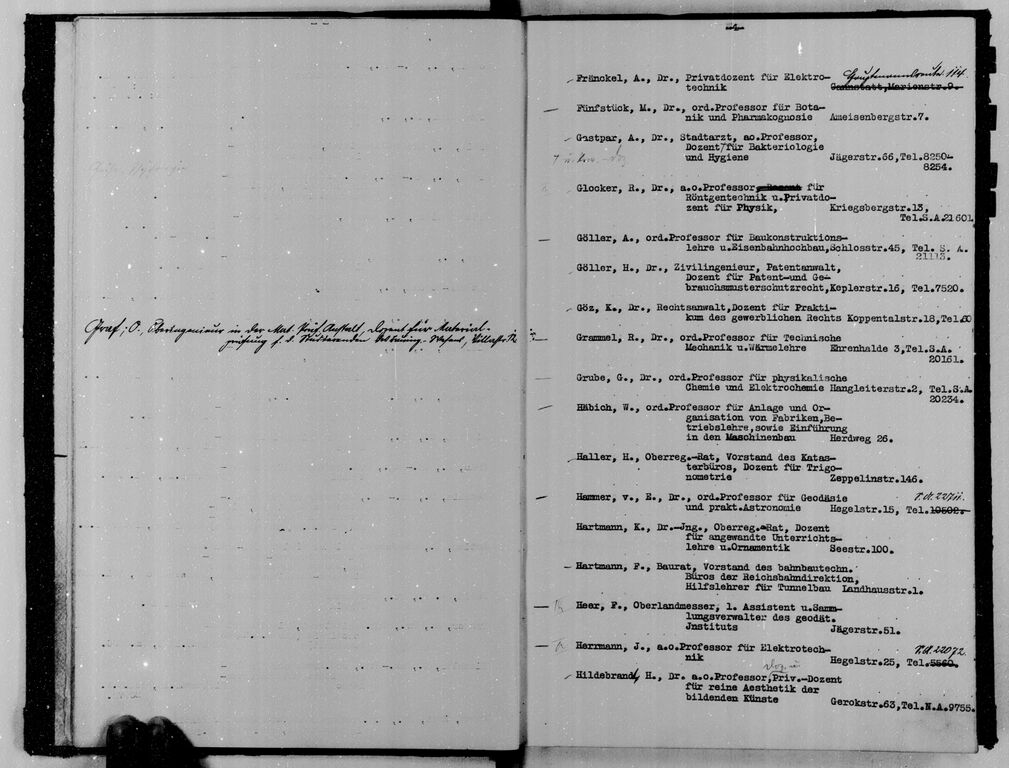 Graf, O., Oberingenieur in der Mat. Prüf. Anstalt, Dozent für Material-
prüfung f. d. Studierenden
-4-
Fränckel, A., Dr., Privatdozent für Elektro-
technik Cannstatt, Marienstr.9. 114.
Fünfstück, M., Dr., ord.Professor für Bota-
nik und Pharmakognosie Ameisenbergstr.7.
Gastpar, A., Dr., Stadtarzt, ao.Professor,
Dozent für Bakteriologie
und Hygiene Jägerstr.66,Tel.8250-
8254.
Glocker, R., Dr., a.o.Professor für
Röntgentechnik u.Privatdo-
zent für Physik, Kriegsbergstr.13,
Tel.S.A.21601
Göller, A., ord.Professor für Baukonstruktions-
lehre u.Eisenbahnhochbau,Schlosstr.45, Tel. S. A.
21113.
Göller, H., Dr., Zivilingenieur, Patentanwalt,
Dozent für Patent-und Ge-
brauchsmusterschutzrecht,Keplerstr.16, Tel.7520.
Göz, K., Dr., Rechtsanwalt,Dozent für Prakti-
kum des gewerblichen Rechts Koppentalstr.18,Tel.60
Grammel, R., Dr., ord.Professor für Technische
Mechanik u.Wärmelehre Ehrenhalde 3,Tel.S.A.
20161.
Grube, G., Dr., ord.Professor für physikalische
Chemie und Elektrochemie Hangleiterstr.2, Tel.S.A.
20234.
Häbich, W., ord.Professor für Anlage und Or-
ganisation von Fabriken,Be-
triebslehre,sowie Einführung
in den Maschinenbau Herdweg 26.
Haller, H., Oberreg.-Rat, Vorstand des Katas-
terbüros, Dozent für Trigo-
nometrie Zeppelinstr.146.
Hammer, v., E., Dr., ord.Professor für Geodäsie
und prakt.Astronomie Hegelstr.15, Tel.10502.
Hartmann, K., Dr.-Jng., Oberreg.-Rat, Dozent
für angewandte Unterrichts-
lehre u.Ornamentik Seestr.100.
Hartmann, F., Baurat, Vorstand des bahnbautechn.
Büros der Reichsbahndirektion,
Hilfslehrer für Tunnelbau Landhausstr.1.
Heer, F., Oberlandmesser, 1. Assistent u.Samm-
lungsverwalter des geodät.
Jnstituts Jägerstr.51.
Herrmann, J., a.o.Professor für Elektrotech-
nik Hegelstr.25, Tel.5560. 22072
Doz. u
Hildebrandt, H., Dr. a.o.Professor,Priv.-Dozent
für reine Aesthetik der
bildenden Künste Gerokstr.63,Tel.N.A.9755.